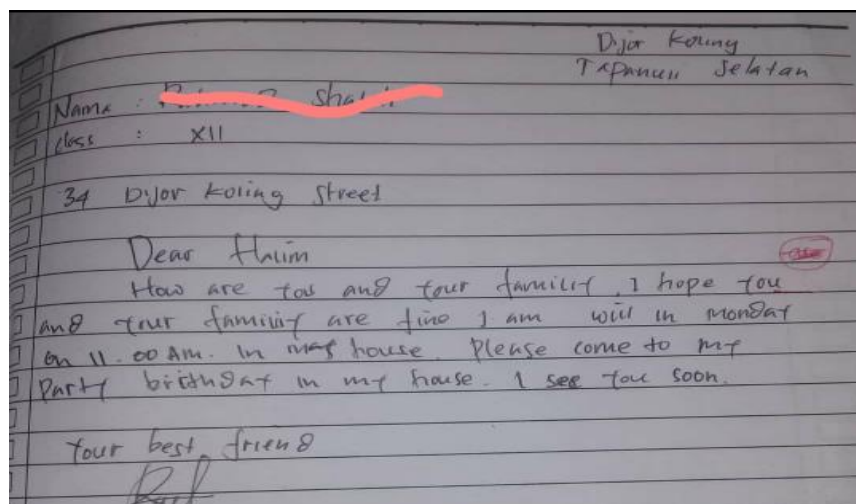 Dijor Koling
Tapanuli Selatan
Nama :
class : XII
34 Dijor Koling Street
Dear Halim
How are you and your familiy . I hope you
and your familiy are fine I am will in Monday
on 11.00 AM. In house. Please come to my
Party birthday in my house. I see you soon.
Your best friend